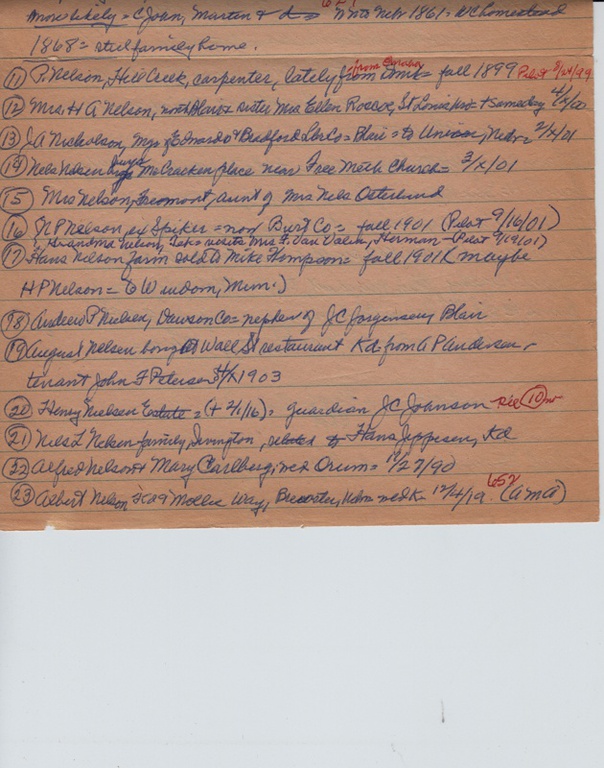 more likely = C Joan, Marten + = Wn to Nebr 1861 = WC homestead
1868 = still family home.
from Omaha
(11) P. Nelson, Hill Creek, carpenter, lately from = fall 1899 Pilot 8/24/99
(12) Mrs. H A Nelson, north Blair + sister Mrs Ellen Roscoe, St Louis + someday 4/x/00
(13) J A Nicholson, Mgr of Edwards & Bradford Lbr Co = Blair = to Union, Nebr = 2/x/01
(14) Nels Nelsen buys McCracken place near Free Meth Church = 3/x/01
(15) Mrs Nelson, Fremont, aunt of Mrs Nels Osterlund
(16) N P Nelson, ex Spiker = now Burt Co = fall 1901 (Pilot 9/16/01)
Grandma Nelson, visits Mrs F. Van Valin, Herman - Pilot 9/19/01)
(17) Hans Nelson farm sold to Mike Thompson = fall 1901 (maybe
H P Nelson = to Windom, Minn.)
(18) Andrew P Nielsen, Dawson Co = nephew of J C Jorgensen, Blair
(19) August Nelsen buying Wall St restaurant Kd from A P Andersen,
tenant John F Petersen 4/x/1903
(20) Henry Nielsen Estate = (+ 2/1/16) = guardian J C Johnson see (10)
(21) Nels L Nelsen family, Irvington, related to Hans Jeppesen, Kd
(22) Alfred Nelson + Mary Carlberg, med Orum = 11/27/90
652
(23) Albert Nelson + Mollie Way, Brewster, Nebr med K = 12/4/19. (AMA)